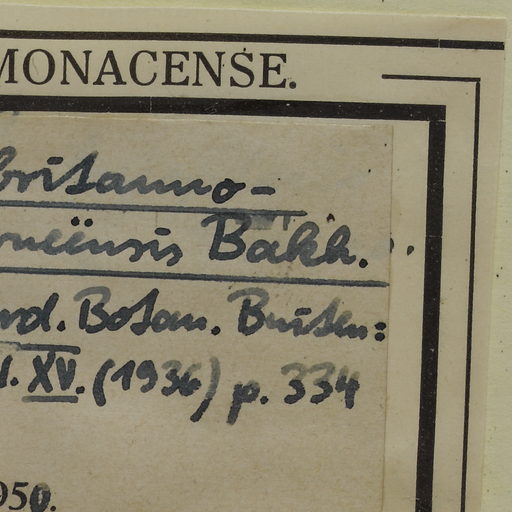 MONACENSE.
britanno-
neënsis Bakh.
rd. Botan. Buiten:
l. XV. (1936) p. 334
950.